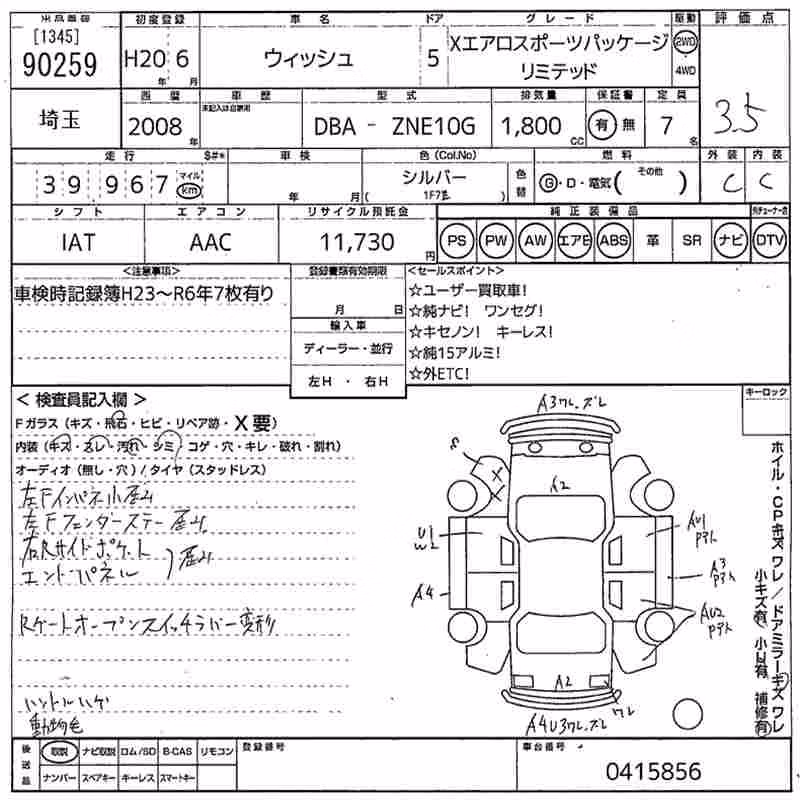 出品番号 初度登録 車名 ドア グレード 駆動 評価点
[1345] 90259 H20年 6月 ウィッシュ 5 Xエアロスポーツパッケージ リミテッド 2WD 4WD 3.5
埼玉 西暦 車歴 型式 排気量 保証書 定員
2008年 未記入は自家用 DBA - ZNE10G 1,800cc 有 無 7名
走行 $#* 車検 色(Col.No) 燃料 外装 内装
39967 マイル km 年 月 シルバー ( 1F7 ) 色替 G・D・電気( その他 ) C C
シフト エアコン リサイクル預託金 純正装備品
IAT AAC 11,730円 PS PW AW エアB ABS 革 SR ナビ DTV
<注意事項> 登録書類有効期限 <セールスポイント>
車検時記録簿H23〜R6年7枚有り
月 日
輸入車
ディーラー・並行
左H ・ 右H
☆ユーザー買取車!
☆純ナビ! ワンセグ!
☆キセノン! キーレス!
☆純15アルミ!
☆外ETC!
キーロック
< 検査員記入欄 >
Fガラス (キズ・飛石・ヒビ・リペア跡・X要)
内装 (キズ・スレ・汚れ・シミ) コゲ・穴・キレ・破れ・割れ)
オーディオ (無し・穴) / タイヤ (スタッドレス)
左Fインパネ小歪み
左Fフェンダーステー歪み
右Rサイドポケット
エンドパネル ) 歪み
Rゲートオープンスイッチラバー変形
ハンドルハゲ
動物毛
A3ワレ.ズレ
S
X
X
A2
U1
W2
A4
AU1
Pアト
A3
Pアト
AU2
Pアト
A2
ワレ
A4U3ワレ.ズレ
ホイル・CPキズワレ/ドアミラーキズワレ
小キズ有 小凹有 補修有
後送品 取説 ナビ取説 ロム/SD B-CAS リモコン
ナンバー スペアキー キーレス スマートキー
登録番号
車台番号
0415856